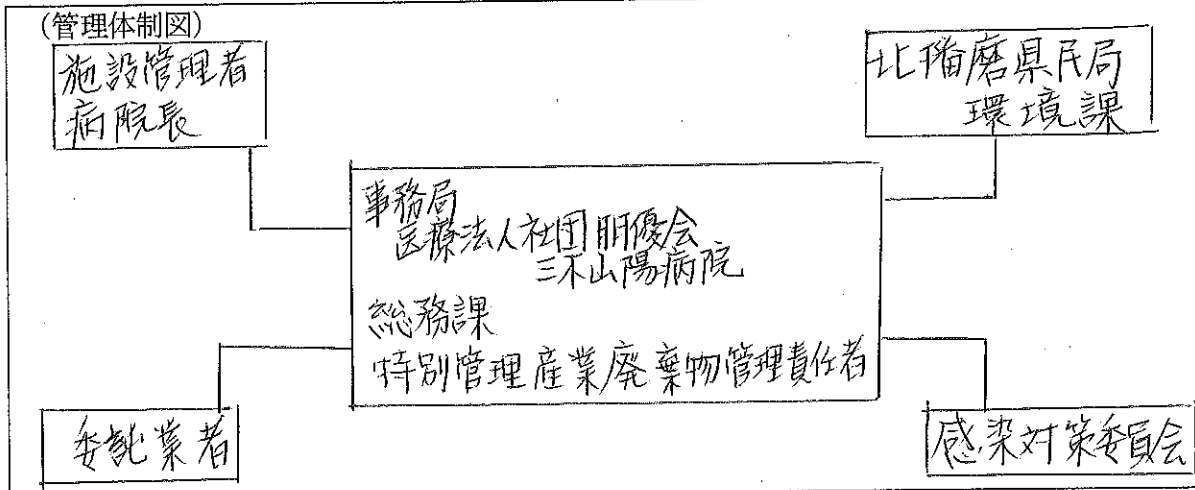 (管理体制図)
施設管理者
病院長
北播磨県民局
環境課
事務局
医療法人社団朋優会
三木山陽病院
総務課
特別管理産業廃棄物管理責任者
委託業者
感染対策委員会